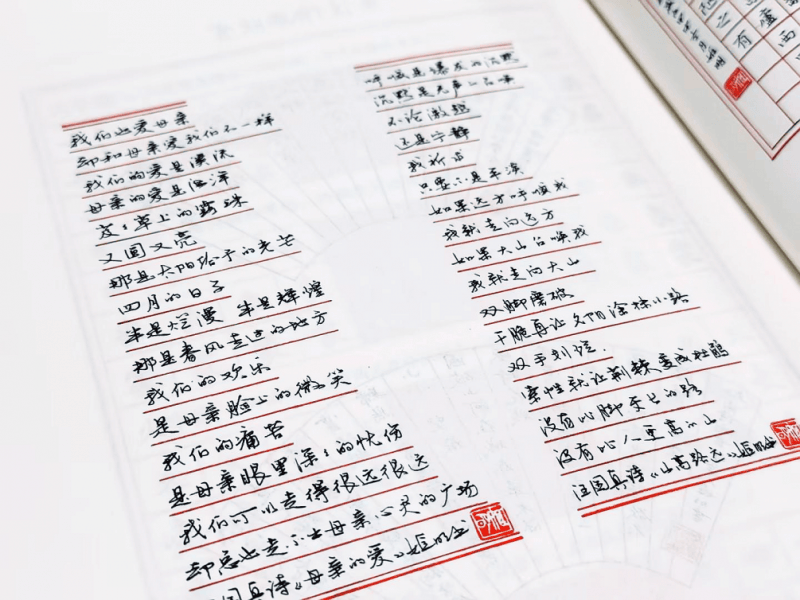 我们也爱母亲
却和母亲爱我们不一样
我们的爱是溪流
母亲的爱是海洋
芨芨草上的露珠
又圆又亮
那是太阳给予的光芒
四月的日子
半是烂漫 半是辉煌
那是春风走过的地方
我们的欢乐
是母亲脸上的微笑
我们的痛苦
是母亲眼里深深的忧伤
我们可以走得很远很远
却总也走不出母亲心灵的广场
国真诗《母亲的爱》
呼喊是爆发的沉默
沉默是无声的召唤
不论激越
还是宁静
我祈求
只要不是平淡
如果远方呼喊我
我就走向远方
如果大山召唤我
我就走向大山
双脚磨破
干脆再让夕阳涂抹小路
双手划烂
索性就让荆棘变成杜鹃
没有比脚更长的路
没有比人更高的山
汪国真诗《山高路远》